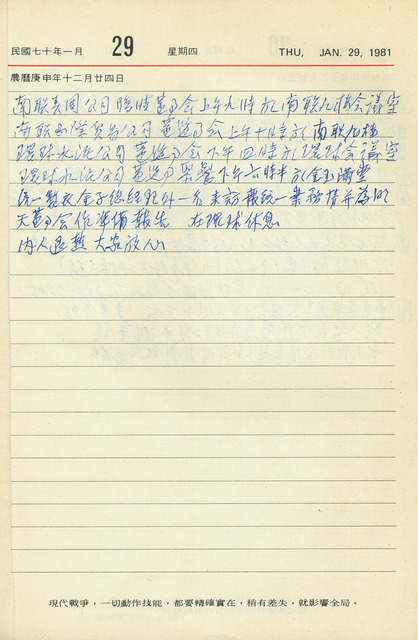 民國七十年一月 29 星期四 THU, JAN. 29, 1981
農曆庚申年十二月廿四日
南聯美國公司臨時董事會上午九時於南聯九樓會議室
南聯國際貿易公司董監事會上午十時於南聯九樓
環球水泥公司董監事會下午四時於環球會議室
環球水泥公司董監事聚餐下午六時半於金玉滿堂
統一製衣金子總經理外一名來訪報統一業務情 并為明
天董事會作準備報告 在環球休息
內人退熱大家放心
現代戰爭，一切動作技能，都要精確實在，稍有差失，就影響全局。